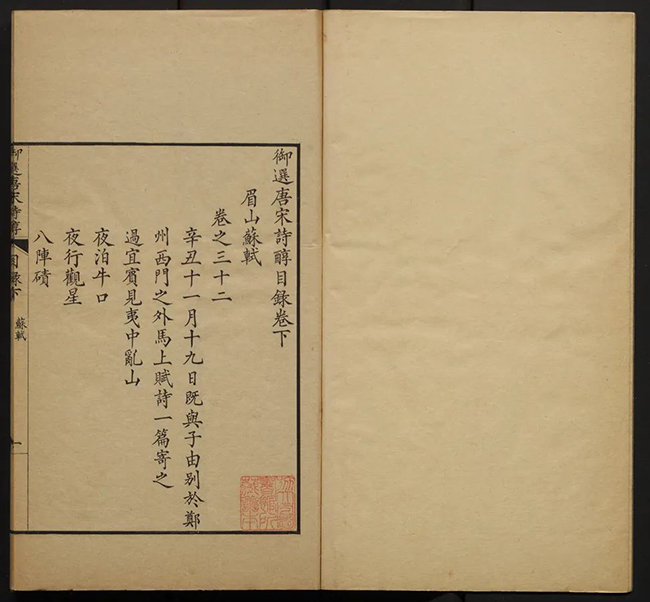 御選唐宋詩醇目錄卷下
眉山蘇軾
卷之三十二
辛丑十一月十九日既與子由别於鄭
州西門之外馬上賦詩一篇寄之
過宜賓見夷中亂山
夜泊牛口
夜行觀星
八陣磧
御選唐宋詩醇
目錄下
蘇軾
一